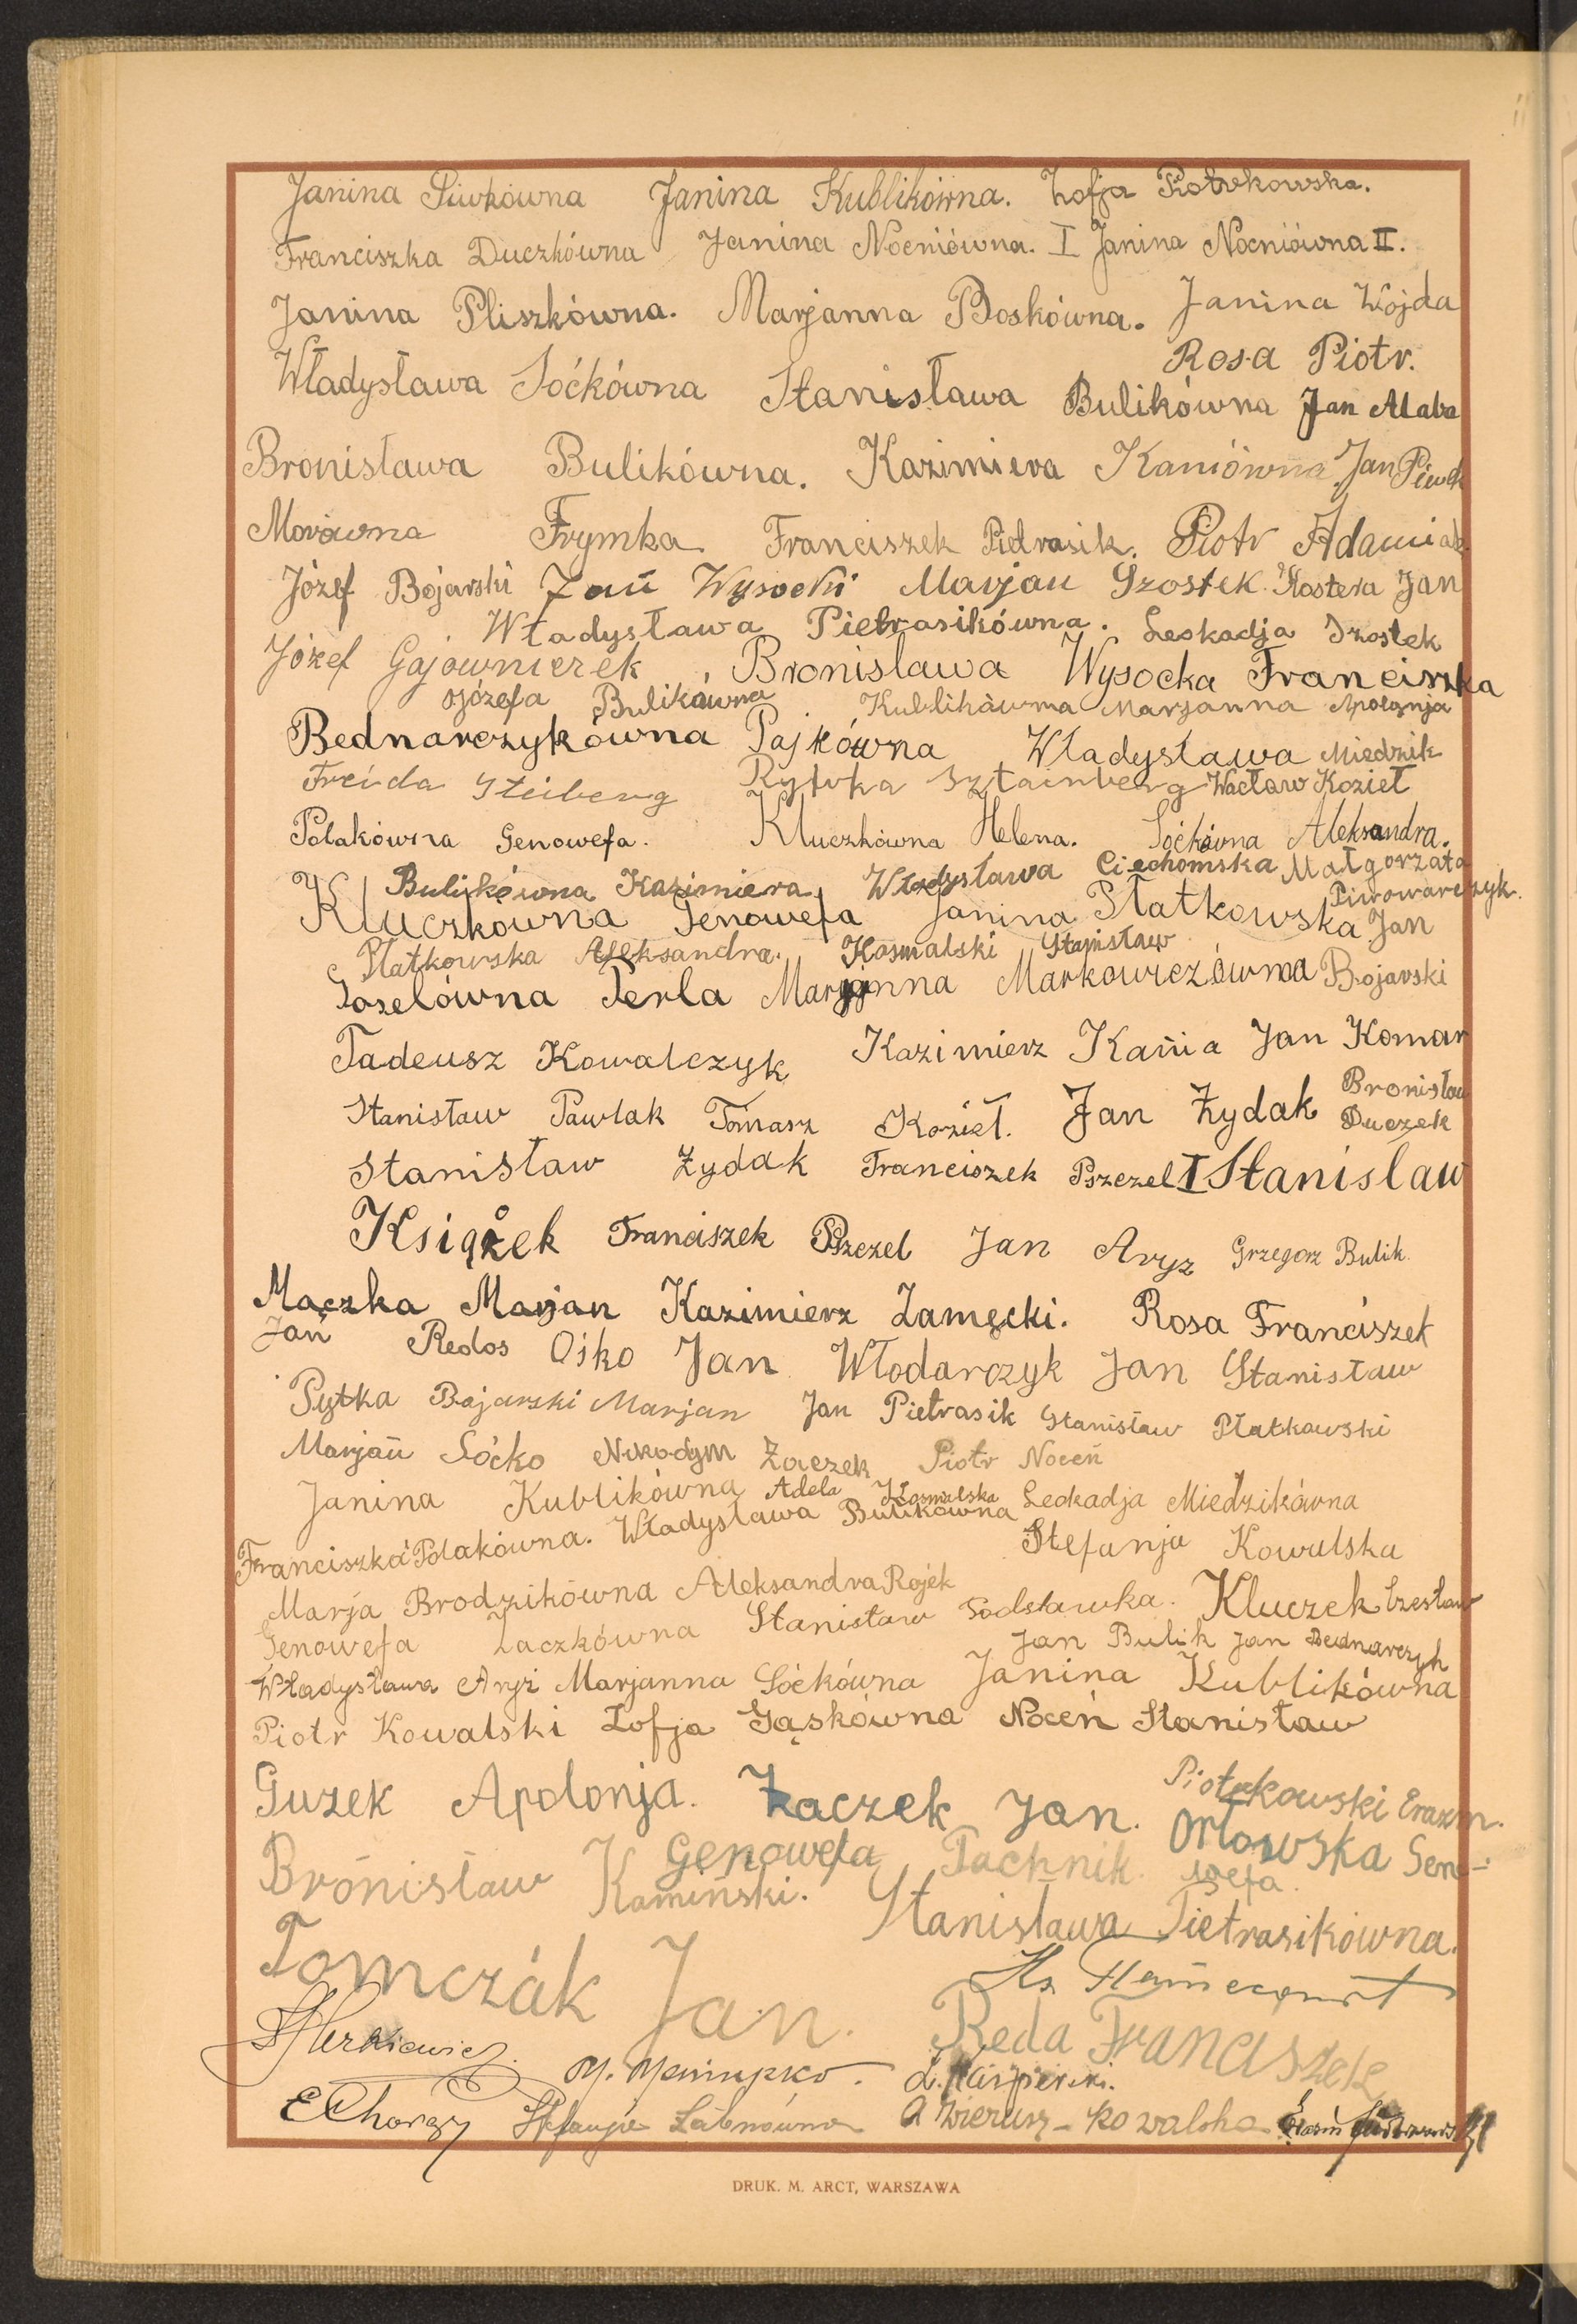 Janina Siwkówna Janina Kublikówna. Zofja Piotrkowska.
Franciszka Duczkówna Janina Nocniówna. I Janina Nocniówna II.
Janina Pliszkówna. Marjanna Boskówna. Janina Wojda
Rosa Piotr.
Władysława Soćkówna Stanisława Bulikówna Jan
Bronisława Bulikówna. Kazimiera Kaniówna. Jan Piwek
Frymka Franciszek Pietrasik. Piotr Adamiak
Józef Bojarski Jan Wysocki Marjan Szostek. Kostera Jan
Władysława Pietrasikówna. Leokadja Szostek
Józef Gajowniczek Bronisława Wysocka Franciszka
Józefa Bulikówna Kublikówna Marjanna Apolonja
Bednarczykówna Pajkówna Władysława Miedzik
Freida Steiberg Rytvka Sztainberg Wacław Kozieł
Polakówna Genowefa. Kluczkówna Helena. Soćkówna Aleksandra.
Bulikówna Kazimiera. Władysława Ciechomska Małgorzata
Piwowarczyk.
Kluczkowna Genowefa Janina Płatkowska Jan
Płatkowska Aleksandra. Kosmalski Stanisław
Joselówna Perla Marjanna Markowiczówna Bojarski
Tadeusz Kowalczyk Kazimierz Kania Jan Komar
Stanisław Pawlak Tomasz Kozieł. Jan Żydak Bronisław
Duczek
Stanisław Żydak Franciszek Pszczel I Stanisław
Książek Franciszek Pszczel Jan Aryz Grzegorz Bulik.
Mączka Marjan Kazimierz Zamęcki. Rosa Franciszek
Jan Redos Ośko Jan Włodarczyk Jan Stanisław
Pytka Bojarski Marjan Jan Pietrasik Stanisław Płatkowski
Marjan Soćko Nikodym Żaczek Piotr Noceń
Janina Kublikówna Adela Kosmalska Leokadja Miedzikówna
Franciszka Polakówna. Władysława Bulikówna Stefanja Kowalska
Marja Brodzikówna Aleksandra Rojek
Genowefa Żaczkówna Stanisław Podstawka. Kluczek Czesław
Jan Bulik Jan Bednarczyk
Władysława Aryż Marjanna Soćkówna Janina Kublikówna
Piotr Kowalski Zofja Gąskówna Noceń Stanisław
Guzek Apolonja. Żaczek Jan. Piotrkowski Erazm.
Genowefa Pachnik. Orłowska Geno-
wefa.
Bronisław Kamiński. Stanisława Pietrasikówna.
Tomczak Jan. Ks.
Reda Franciszek
E Chorąży Stefanja A Wierusz-Kowalska
DRUK. M. ARCT, WARSZAWA